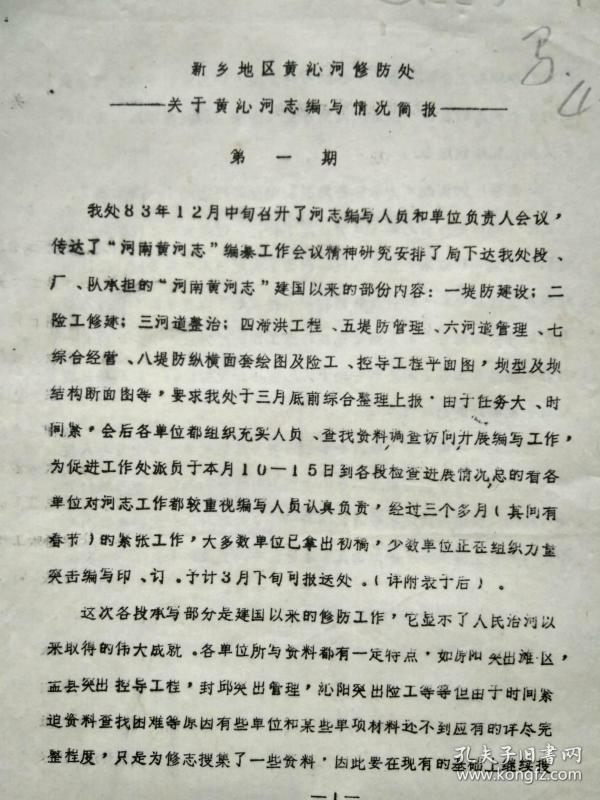 新乡地区黄沁河修防处
——关于黄沁河志编写情况简报——
第一期
我处83年12月中旬召开了河志编写人员和单位负责人会议，
传达了“河南黄河志”编纂工作会议精神研究安排了局下达我处段、
厂、队承担的“河南黄河志”建国以来的部份内容：一堤防建设；二
险工修建；三河道整治；四滞洪工程、五堤防管理、六河道管理、七
综合经营、八堤防纵横面套绘图及险工、控导工程平面图，坝型及坝
结构断面图等，要求我处于三月底前综合整理上报．由于任务大、时
间紧，会后各单位都组织充实人员、查找资料调查访问开展编写工作，
为促进工作处派员于本月10—15日到各段检查进展情况总的看各
单位对河志工作都较重视编写人员认真负责，经过三个多月（其间有
春节）的紧张工作，大多数单位已拿出初稿，少数单位正在组织力量
突击编写印、订．予计3月下旬可报送处．（详附表于后）．
这次各段承写部分是建国以来的修防工作，它显示了人民治河以
来取得的伟大成就．各单位所写资料都有一定特点，如原阳突出滩区，
孟县突出控导工程，封邱突出管理，沁阳突出险工等等但由于时间紧
迫资料查找困难等原因有些单位和某些单项材料还不到应有的详尽完
整程度，只是为修志搜集了一些资料，因此要在现有的基础上继续搜
—1—
孔夫子旧书网
www.kongfz.com